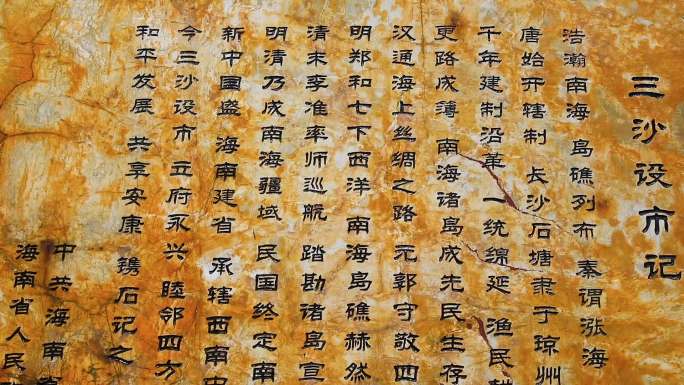 三沙设市记
浩瀚南海 岛礁列布 秦谓涨海
唐始开辖制 长沙石塘隶于琼州
千年建制沿革 一统绵延 渔民
更路成簿 南海诸岛成先民生存
汉通海上丝绸之路 元郭守敬四
明郑和七下西洋 南海岛礁赫然
清末李准率师巡航 踏勘诸岛宣
明清乃成南海疆域 民国终定南
新中国盛 海南建省 承辖西南中
今三沙设市 立府永兴 睦邻四方
和平发展 共享安康 镌石记之
中共海南
海南省人民